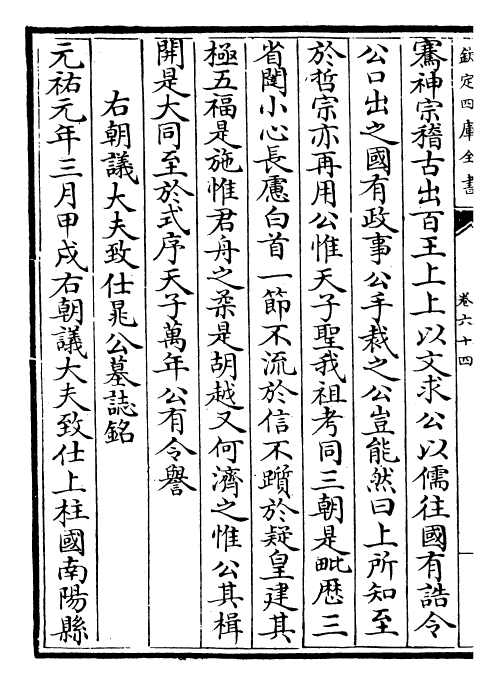 欽定四庫全書
卷六十四
騫神宗稽古出百王上上以文求公以儒往國有誥令
公口出之國有政事公手裁之公豈能然曰上所知至
於哲宗亦再用公惟天子聖我祖考同三朝是毗歴三
省闥小心長慮白首一節不流於信不躓於疑皇建其
極五福是施惟君舟之柔是胡越又何濟之惟公其楫
開是大同至於式序天子萬年公有令譽
右朝議大夫致仕晁公墓誌銘
元祐元年三月甲戌右朝議大夫致仕上柱國南陽縣